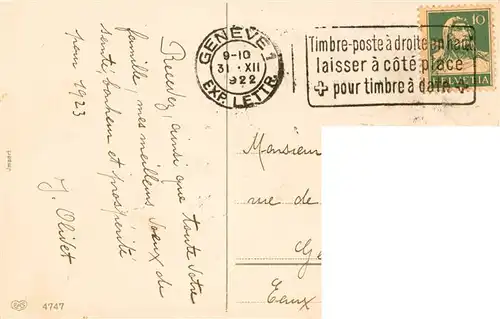 Recevez, ainsi que toute votre
famille, mes meilleurs voeux de
santé, bonheur et prospérité
pour 1923
J. Olivet
GENÈVE 1
9-10
31.XII
922
EXP. LETTR.
Timbre-poste à droite en haut
laisser à côté place
pour timbre à date
10
HELVETIA
Monsieur
rue de
Ge
Eaux
4747